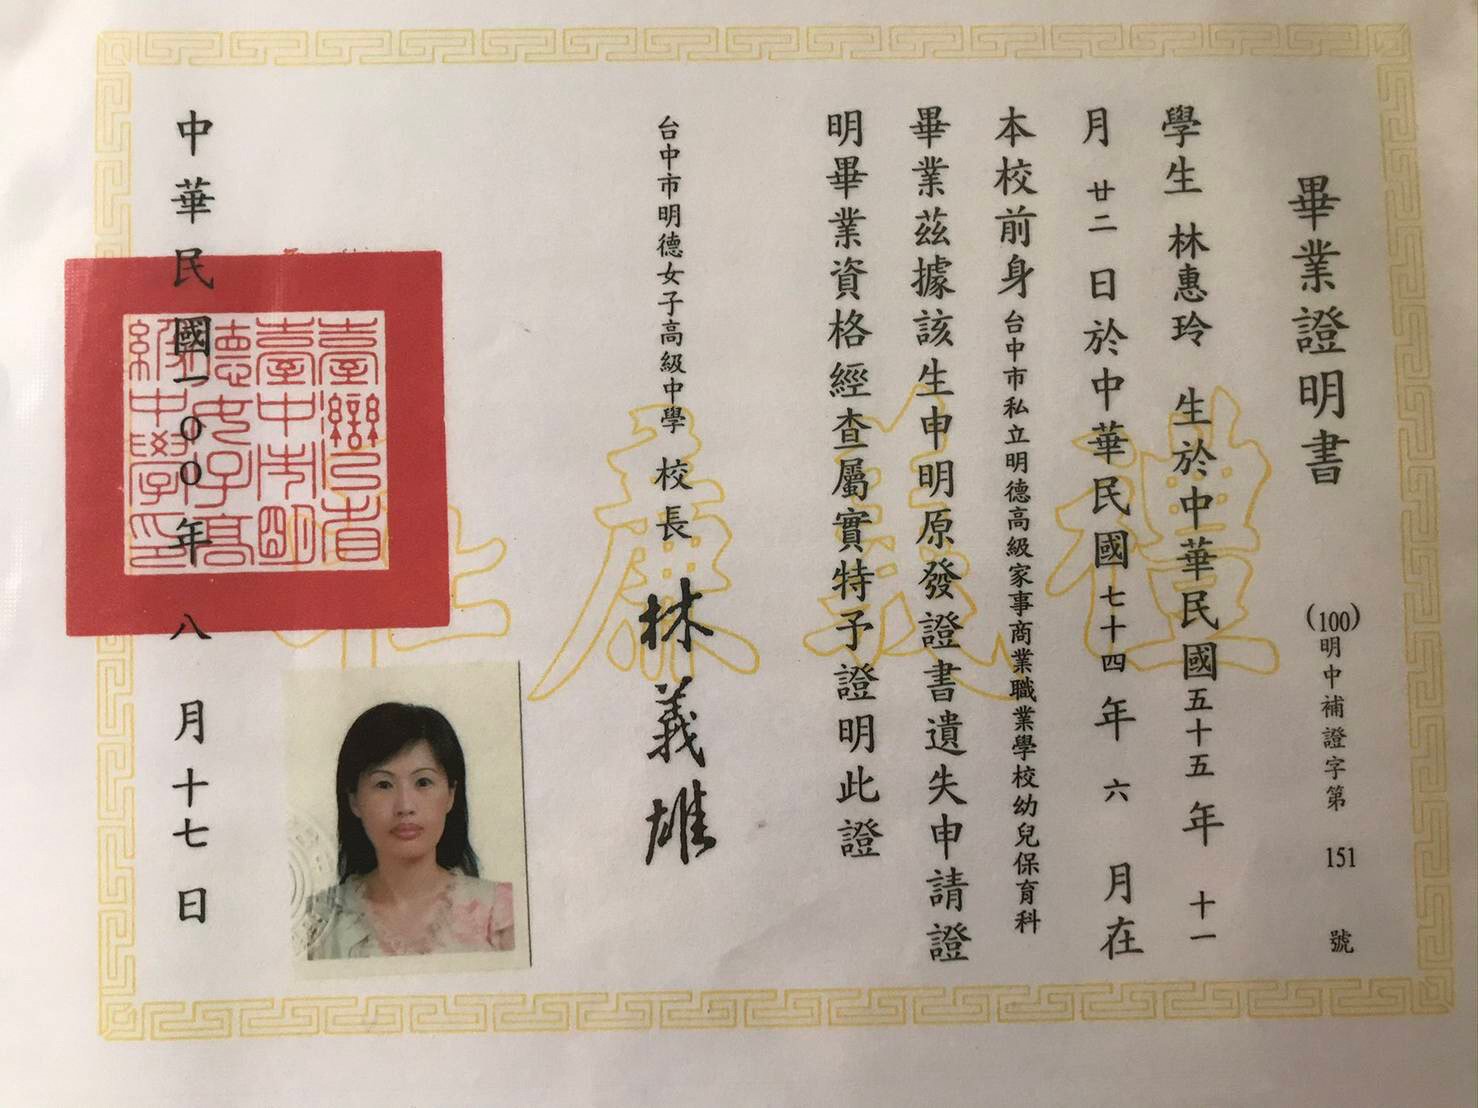 畢業證明書
(100)明中補證字第 151 號
學生 林惠玲 生於中華民國五十五年 十一
月 廿二 日於中華民國七十四年 六 月在
本校前身台中市私立明德高級家事商業職業學校幼兒保育科
畢業茲據該生申明原發證書遺失申請證
明畢業資格經查屬實特予證明此證
台中市明德女子高級中學 校長 林義雄
中華民國一〇〇年 八 月十七日
臺灣省
臺中市明
德女子高
級中學印
禮義廉恥